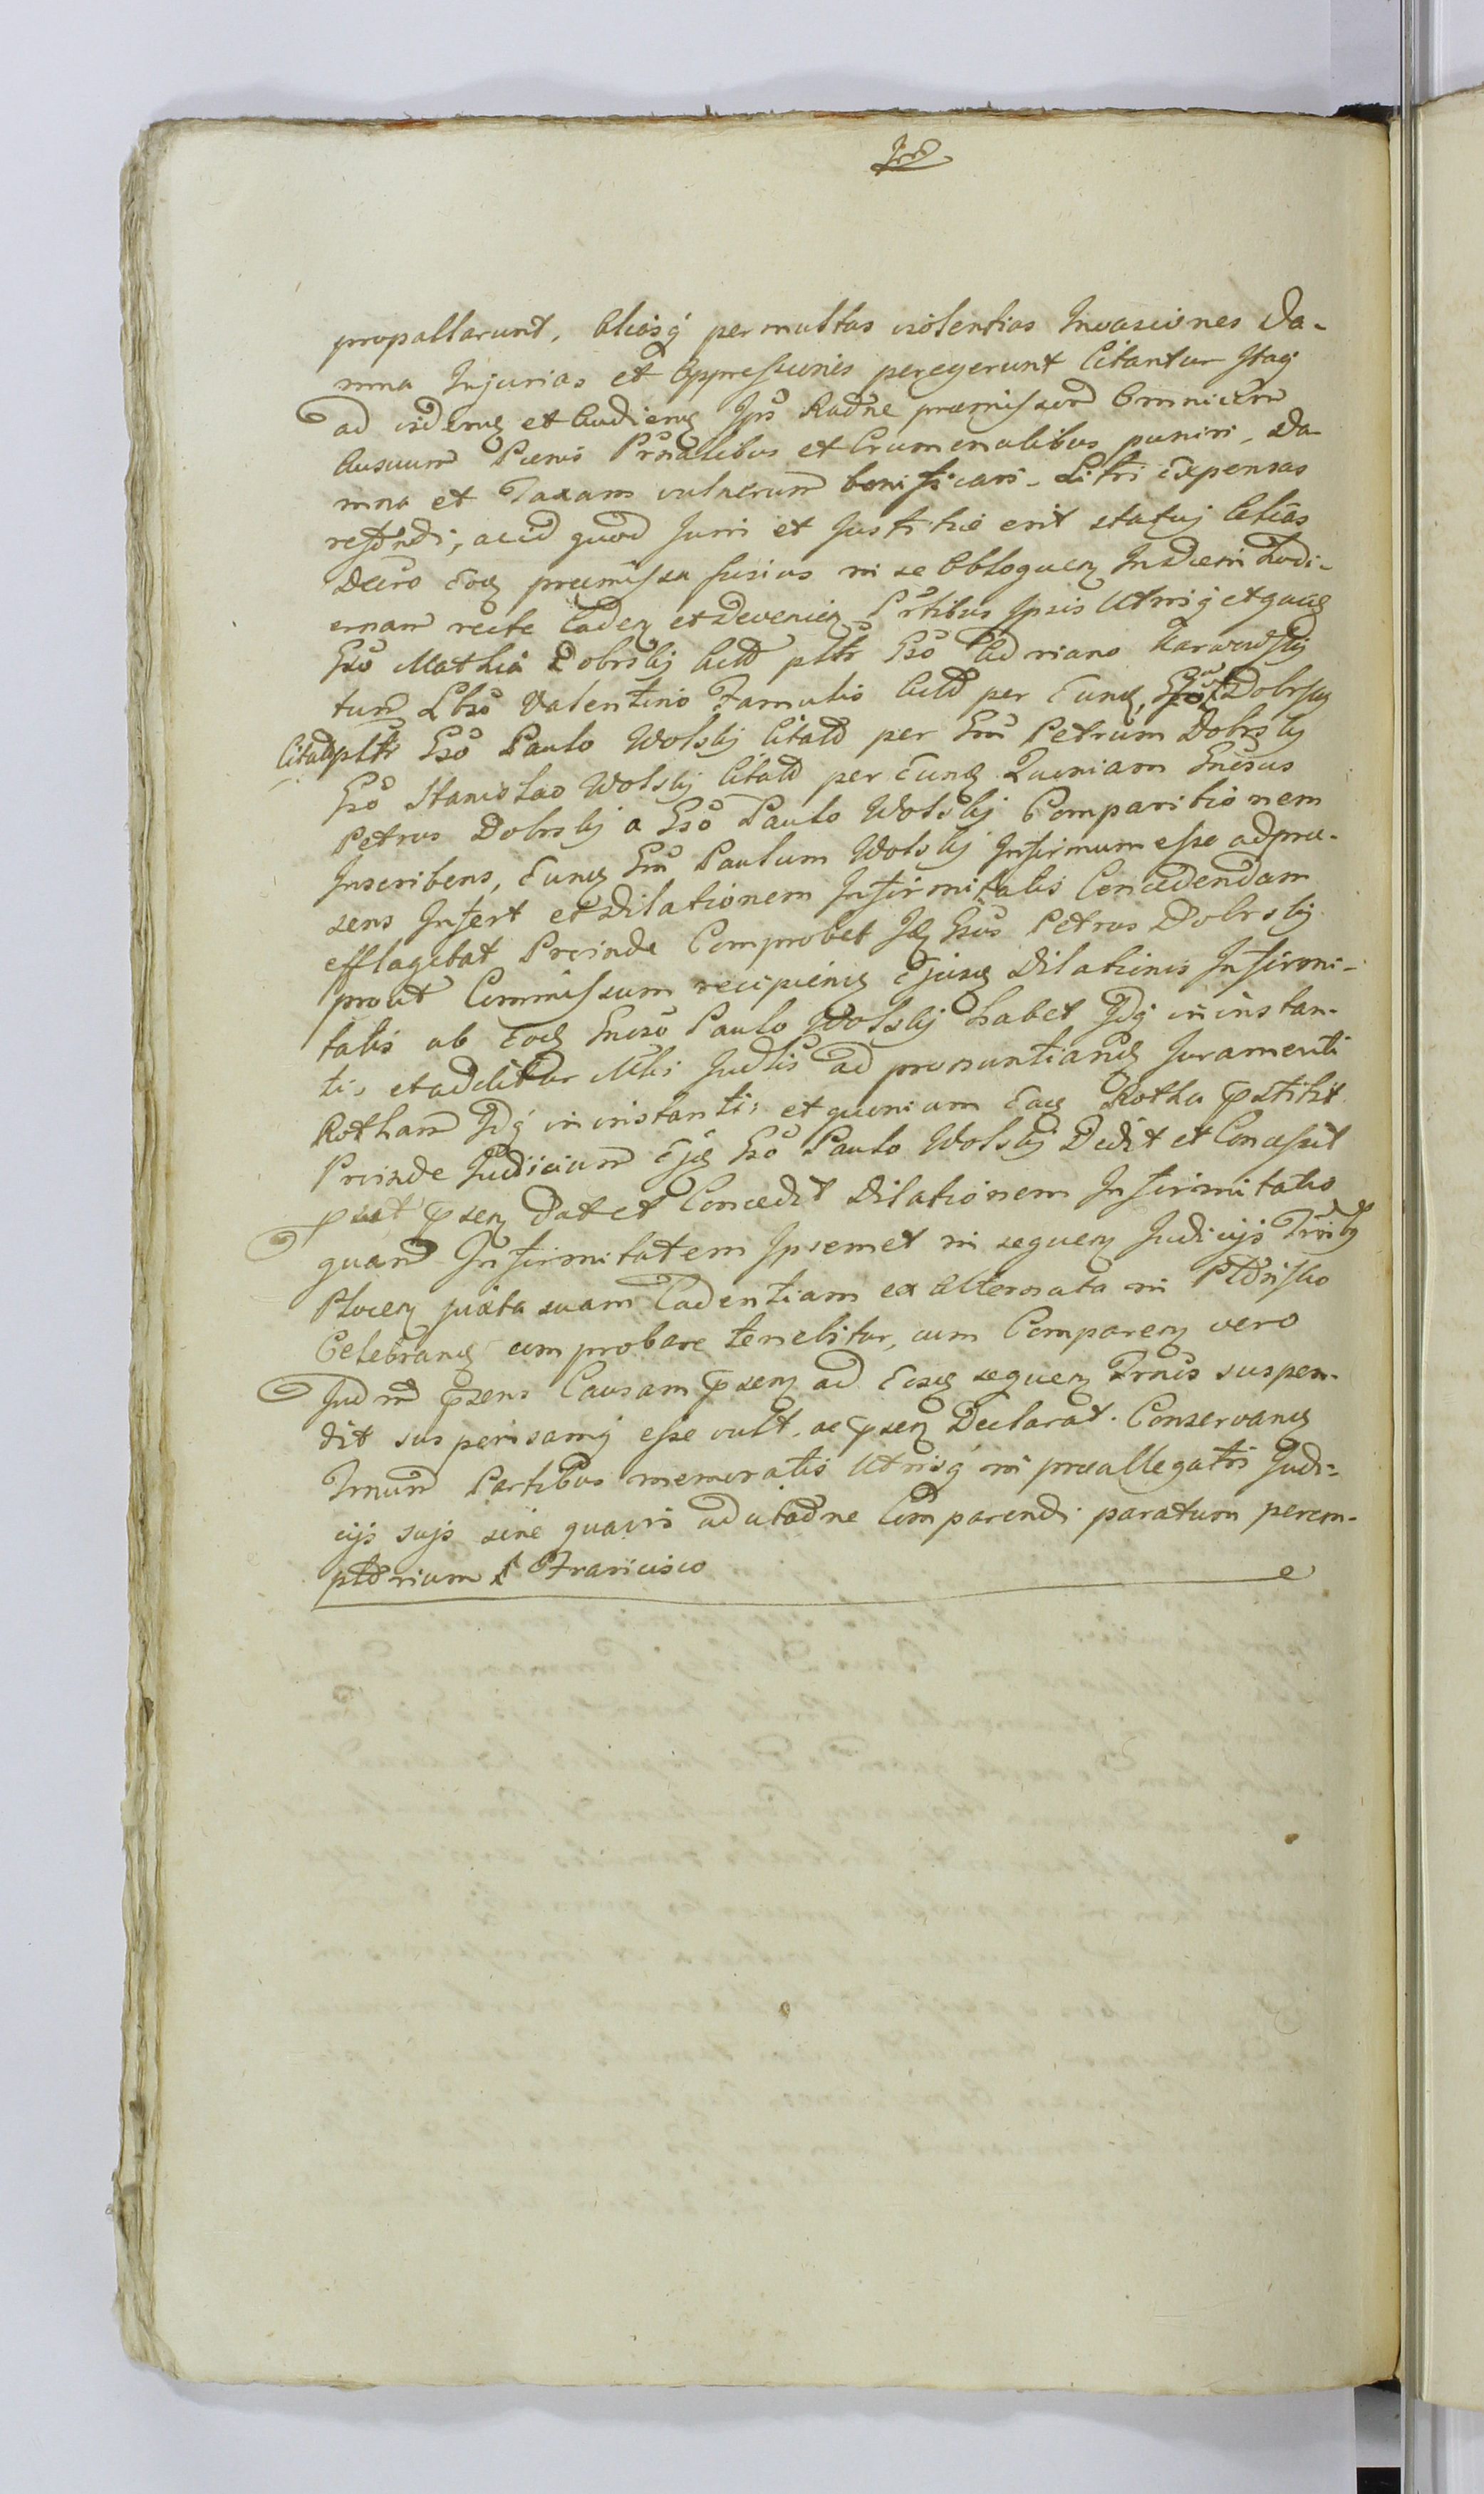 propallarunt, Aliasq permultas violentias Invasiones Da-
mna Injurias et Oppressiones peregerunt Citantur Itaq
ad videnq et Audienq Ipos Radne praemissord Omniom
Ausuum Poenis Prnalibus et Crumenalibus puniri, Da-
mna et Taxam vulnerum bonificari, Litri Expensas
refundi, acid quod Juri et Justitiae erit statuj Citãos
Decro Eoq praemissa fusius in se Obloquen In Diem hodi-
ernam recte Caden et Devenien Prtibus Ipsis Utrisq et quaeq
Gso Mathia Dobrski Actt pltr Gso Adriano Karwowski
tum Lbso Valentino Famulio Citt per Eunq, Dobrskj
Citatt pltr Gso Paulo Wolskj Citatt per Gsm Petrum Dobrskj
Gso Stanislao Wolskj Citatt per Eunq Quoniam Gnesus
Petrus Dobrskj a Gso Paulo Wolskj Comparitionem
Inscribens, Eunq Gsm Paulum Wolskj Infirmum esse ad prae-
sens Infert et Dilationem Infirmitatis Concedendam
efflagitat Proinde Comprobet Iq Gsus Petrus Dobrskj
prout Commissum recipienq Ejusq Dilationis Infirmi-
tatis ab Eoq Gneso Paulo Wolskj habet Idq in instan-
ti, et additur Mtis Judlis ad pronuntianq Juramenti
Rotham Idq in instanti, et quoniam Eaq Rotha pstitit
Proinde Judicium Ejq Gso Paulo Wolskj Dedit et Concessit
put psen Dat et Concedit Dilationem Infirmitatis
quam Infirmitatem Ipsemet in sequen Judicijs Trrib
Plocen juxta suam Cadentiam ex Alternata in
Celebranq comprobare tenebitur, cum Comparen vero
Judm psens Causam psen ad Eosq sequen Trnos suspen-
dit suspensamq esse vult, ac psen Declarat. Conservanq
Trnum Partibus memoratis Utrisq in praeallegatis Judi-
cijs sujs sine quavis adcitadne Comparendi paratum perem-
ptorium Francisco